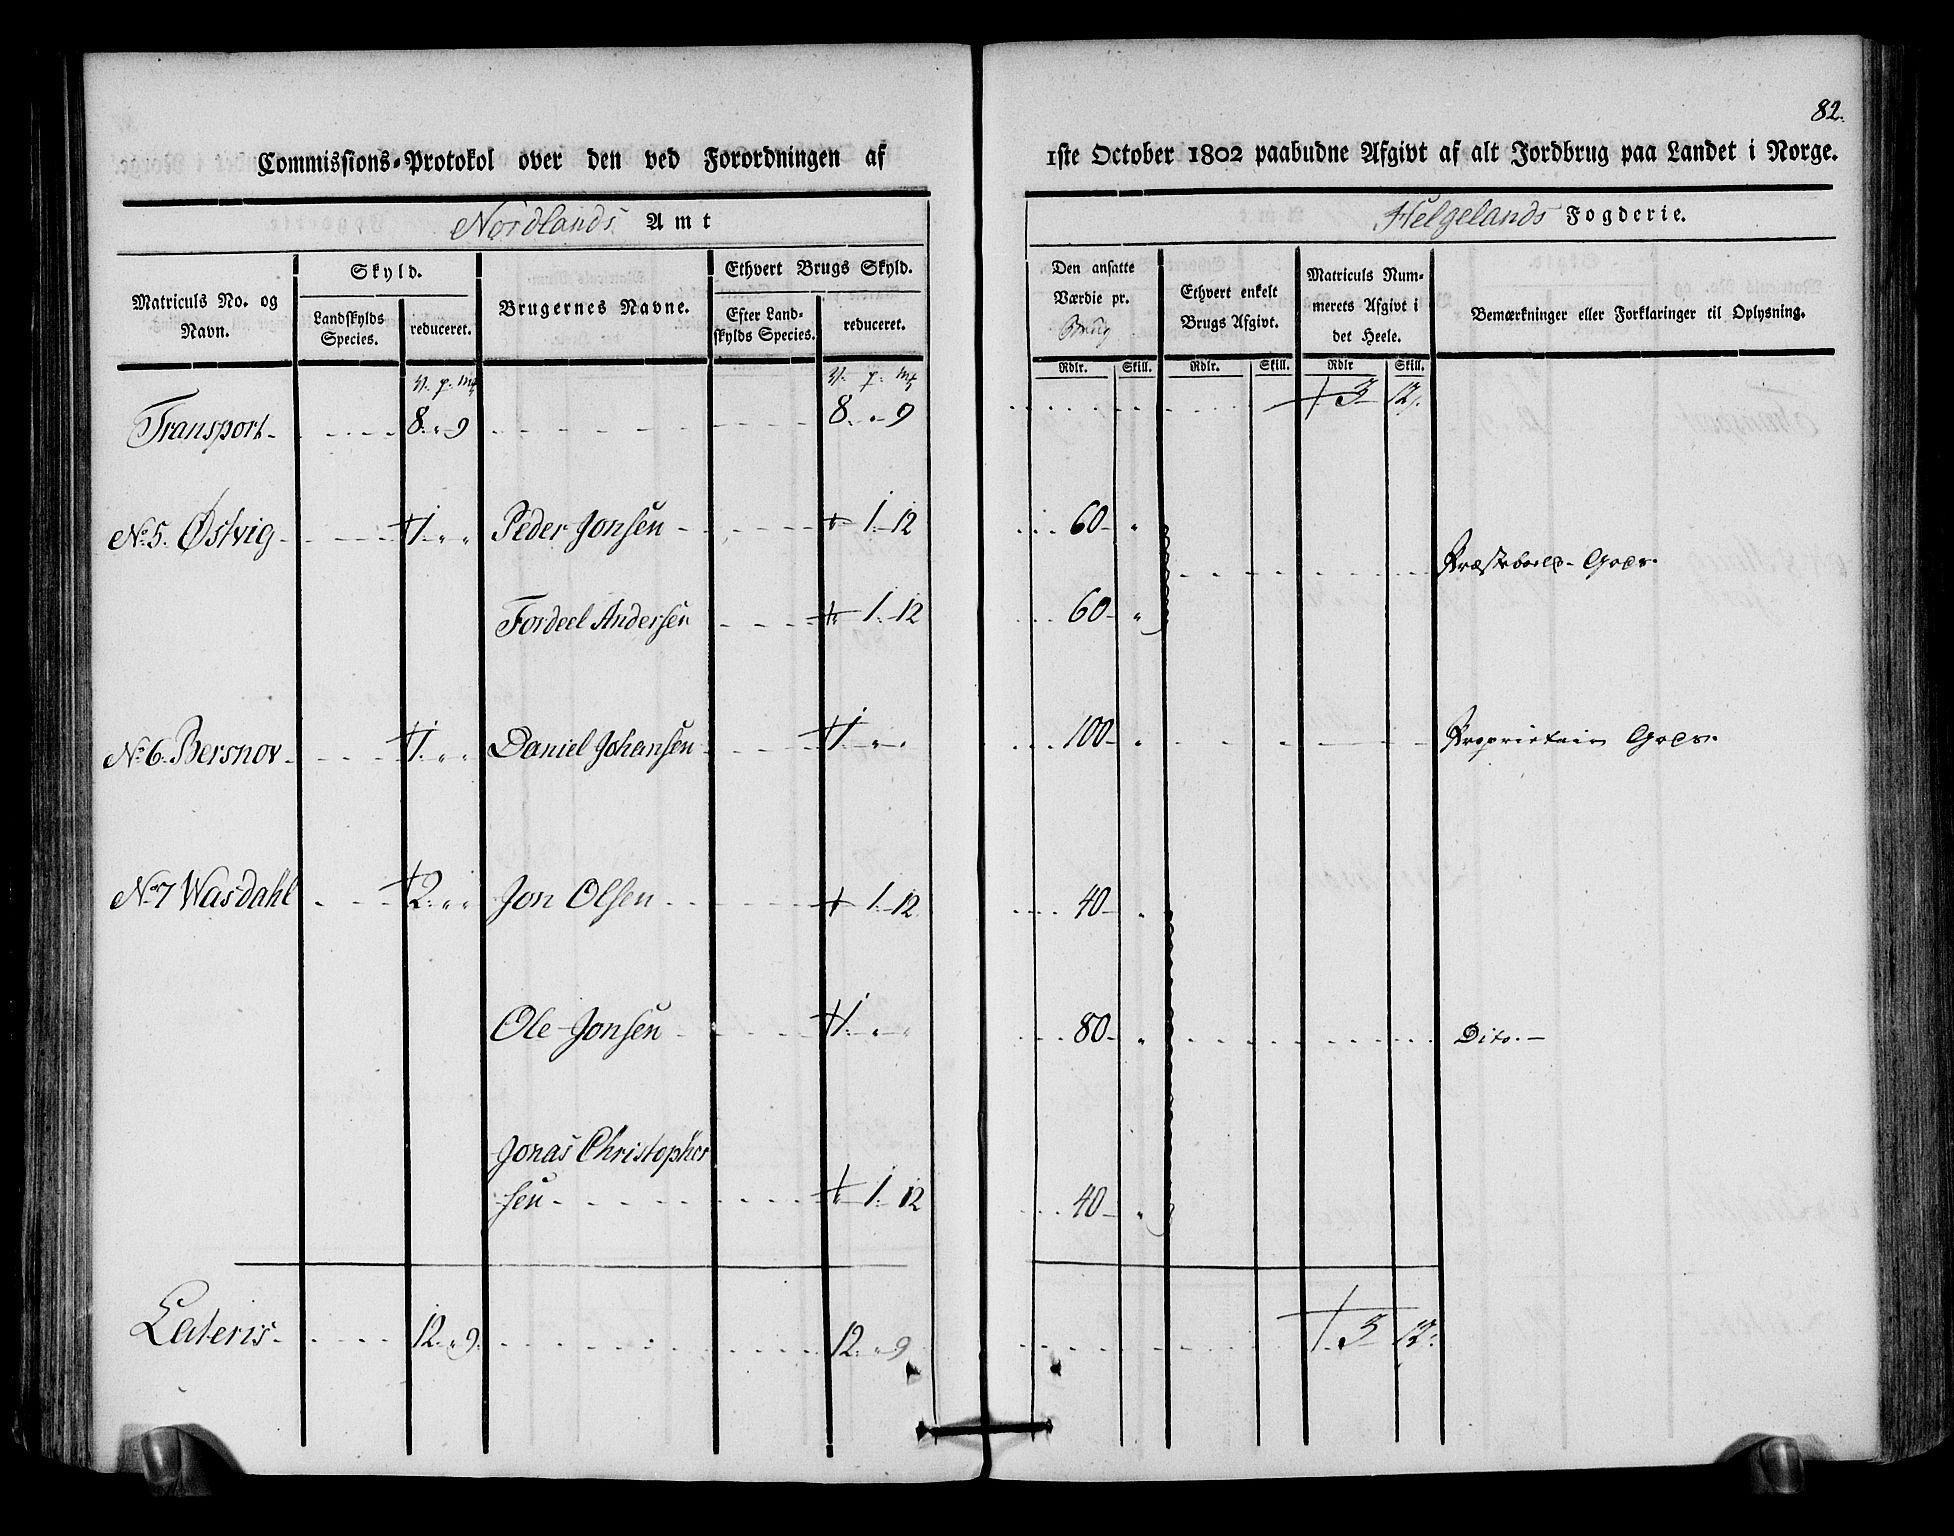 82.
Commissions-Protokol over den ved Forordningen af 1ste October 1802 paabudne Afgivt af alt Jordbrug paa Landet i Norge.
Nordlands Amt
Helgelands Fogderie.
Matriculs No. og Navn.
Skyld.
Landskylds Species.
reduceret.
Brugernes Navne.
Ethvert Brugs Skyld.
Efter Landskylds Species.
reduceret.
Den ansatte Værdie pr. Brug
Ethvert enkelt Brugs Afgivt.
Matriculs Nummerets Afgivt i det Heele.
Bemærkninger eller Forklaringer til Oplysning.
Rdlr. Skill. Rdlr. Skill. Rdlr Skill.
Transport 8 " 9 8 " 9 3 12
No. 5. Østvig 1 " " Peder Jonsen 1 12 60 "
Præstebords Gods
Fordeel Andersen 1 12 60 "
No. 6. Bersnov 1 " " Daniel Johansen 1 " " 100 " Proprietair Gods
No 7 Wasdahl 2 " " Jon Olsen 1 12 40 "
Ole Jonsen 1 " " 80 " Dito.
Jonas Christopher
sen 1 12 40 "
Lateris 12 " 9 12 " 9 3 12